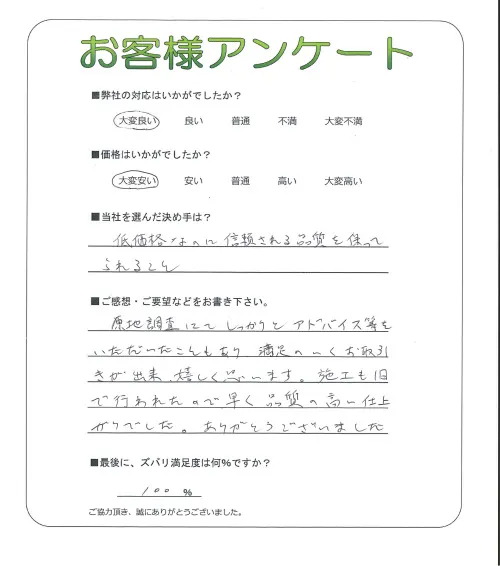 お客様アンケート
■弊社の対応はいかがでしたか？
大変良い 良い 普通 不満 大変不満
■価格はいかがでしたか？
大変安い 安い 普通 高い 大変高い
■当社を選んだ決め手は？
低価格なのに信頼される品質を保って
られること
■ご感想・ご要望などをお書き下さい。
原地調査にてしっかりとアドバイス等を
いただいたこともあり 満足のいくお取引
きが出来、嬉しく思います。施工も1日
で行われたので早く品質の高い仕上
がりでした。ありがとうございました
■最後に、ズバリ満足度は何%ですか？
100 %
ご協力頂き、誠にありがとうございました。